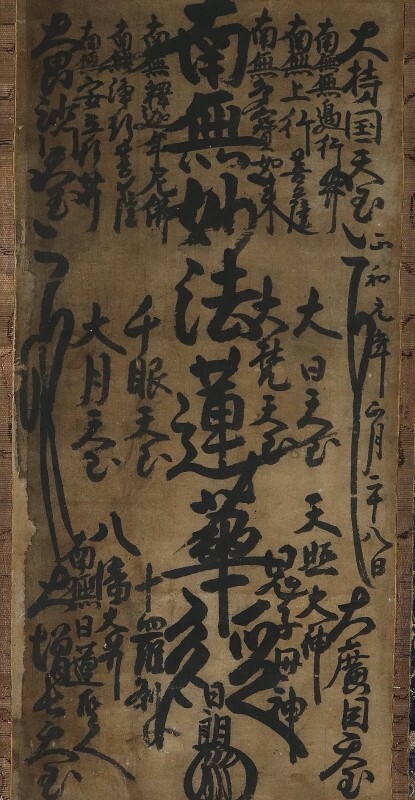 大持国天王
正和元年正月二十八日
大廣目天王
南無無邊行𦬇
南無上行菩薩
南無多寳如来
大日天王
天照大神
大梵天王
鬼子母神
南無妙法蓮華経
日朗
南無釋迦牟尼佛
南無浄行菩薩
南無安立行𦬇
千眼天王
大月天王
十羅刹女
八幡大𦬇
南無日蓮聖人
大増長天王